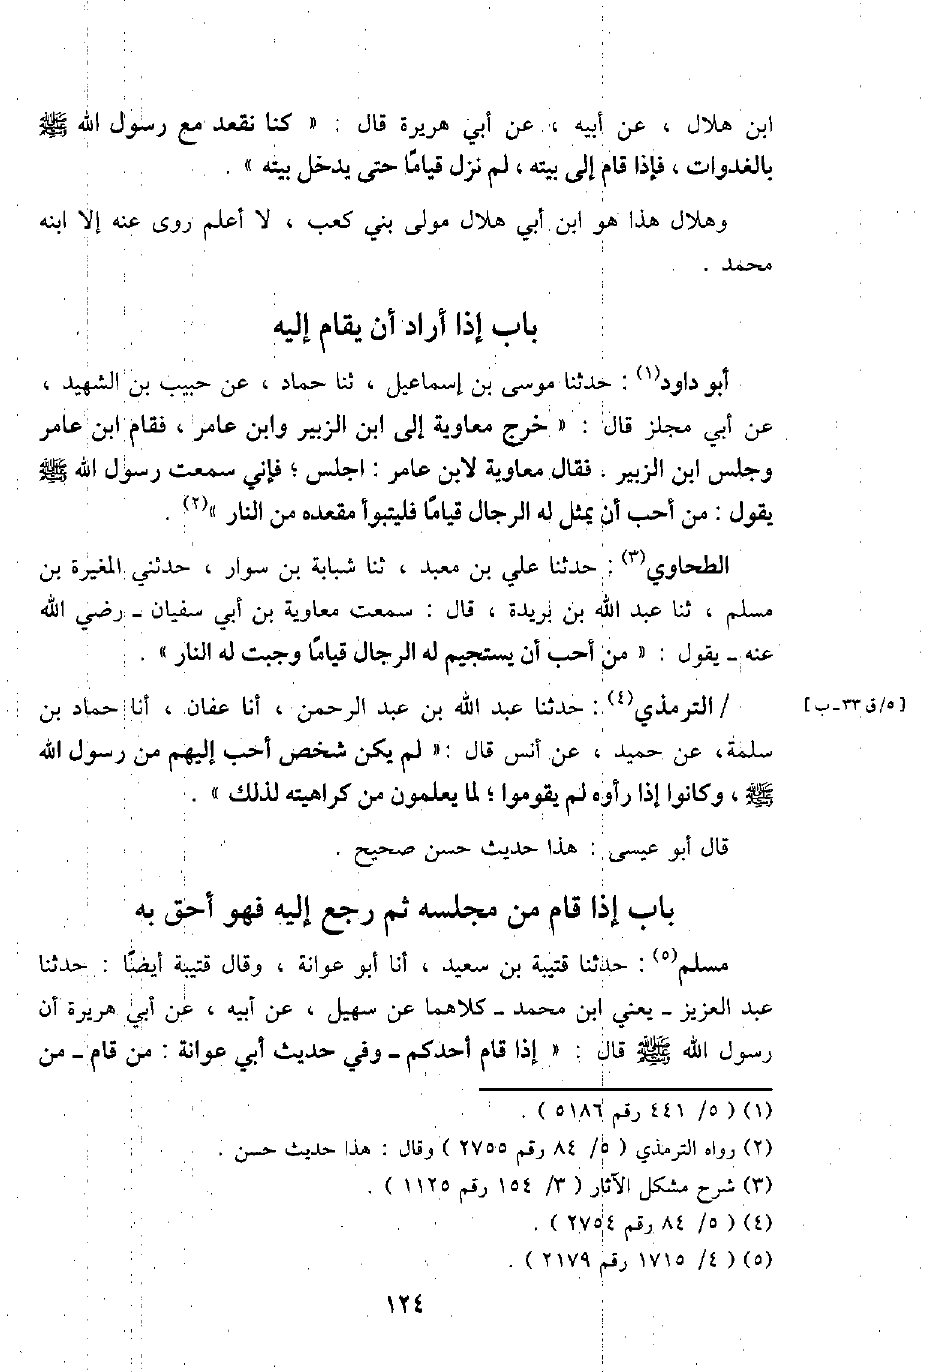 ابن هلال ، عن أبيه ، عن أبي هريرة قال : « كنا نقعد مع رسول الله ﷺ
بالغدوات ، فإذا قام إلى بيته ، لم نزل قيامًا حتى يدخل بيته » .
وهلال هذا هو ابن أبي هلال مولى بني كعب ، لا أعلم روى عنه إلا ابنه
محمد .
باب إذا أراد أن يقام إليه
أبو داود(١) : حدثنا موسى بن إسماعيل ، ثنا حماد ، عن حبيب بن الشهيد ،
عن أبي مجلز قال : « خرج معاوية إلى ابن الزبير وابن عامر ، فقام ابن عامر
وجلس ابن الزبير . فقال معاوية لابن عامر : اجلس ؛ فإني سمعت رسول الله ﷺ
يقول : من أحب أن يمثل له الرجال قيامًا فليتبوأ مقعده من النار »(٢) .
الطحاوي(٣) : حدثنا علي بن معبد ، ثنا شبابة بن سوار ، حدثني المغيرة بن
مسلم ، ثنا عبد الله بن بريدة ، قال : سمعت معاوية بن أبي سفيان ـ رضي الله
عنه ـ يقول : « من أحب أن يستجيم له الرجال قيامًا وجبت له النار » .
/ الترمذي(٤) : حدثنا عبد الله بن عبد الرحمن ، أنا عفان ، أنا حماد بن
[ ٥/ق ٣٣ـ ب ]
سلمة، عن حميد ، عن أنس قال :« لم يكن شخص أحب إليهم من رسول الله
ﷺ ، وكانوا إذا رأوه لم يقوموا ؛ لما يعلمون من كراهيته لذلك » .
قال أبو عيسى : هذا حديث حسن صحيح .
باب إذا قام من مجلسه ثم رجع إليه فهو أحق به
مسلم(٥) : حدثنا قتيبة بن سعيد ، أنا أبو عوانة ، وقال قتيبة أيضًا : حدثنا
عبد العزيز ـ يعني ابن محمد ـ كلاهما عن سهيل ، عن أبيه ، عن أبي هريرة أن
رسول الله ﷺ قال : « إذا قام أحدكم ـ وفي حديث أبي عوانة : من قام ـ من
(١) ( ٥/ ٤٤١ رقم ٥١٨٦ ) .
(٢) رواه الترمذي ( ٥/ ٨٤ رقم ٢٧٥٥ ) وقال : هذا حديث حسن .
(٣) شرح مشكل الآثار ( ٣/ ١٥٤ رقم ١١٢٥ ) .
(٤) ( ٥/ ٨٤ رقم ٢٧٥٤ ) .
(٥) ( ٤/ ١٧١٥ رقم ٢١٧٩ ) .
١٢٤